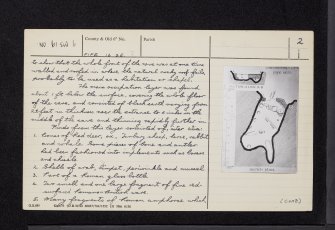 NO 61 SW 6
County & Old 6" No.
Parish
2
to show that the whole front of the cave was at one time
walled and roofed in when the natural rocky roof fails,
probably to be used as a habitation or chapel.
The main occupation layer was found
about 1 ft below the surface, covering the whole floor
of the cave, and consisted of black earth varying from
2 feet in thickness near the entrance to 6 inches in the
middle of the cave and thinning rapidly further in.
Finds from this layer consisted of, inter alia:
1. Bones of Red deer, ox, Turbary sheep, hare, rabbit
and whale. Some pieces of bone and antler
had been fashioned into implements such as
and chisels.
2. Shells of crab, limpet, periwinkle and mussel
3. Part of a Roman glass bottle
4. Two small and one large fragment of fine red
surfaced Romano-British ware.
5. Many fragments of Roman amphorae which
(cont)